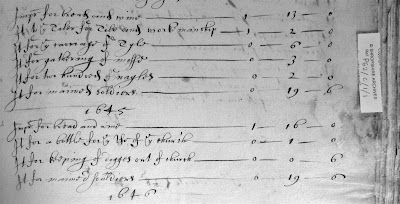 Impr for bread and wine 1 13 0
It for Tyle and workmanship 1 2 0
It for carriage of Tyle 0 6 0
It for gathering of mosse 0 3 0
It for two hundred of nayles 0 2 0
It for maimed soldiers 0 19 6
1645
Impr for bread and wine 1 16 0
It for a bottle for ye use of ye church 0 1 0
It for keeping of dogges out of church 0 0 6
It for maimed souldiers 0 19 6
1646